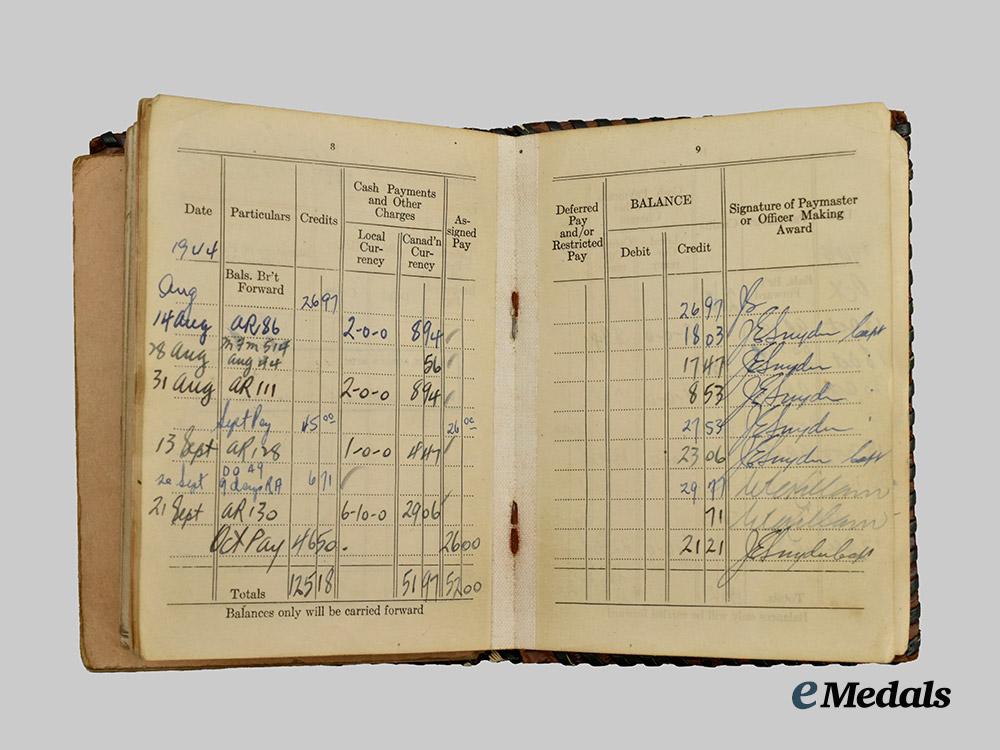 8
Date Particulars Credits Cash Payments and Other Charges Local Cur-rency Canad'n Cur-rency As-signed Pay
1944
Aug Bals. Br't Forward 26 97
14 Aug AR 86 2-0-0 8 94
28 Aug Aug 44 56
31 Aug AR 111 2-0-0 8 94
Sept Pay 45 00 26 00
13 Sept AR 128 1-0-0 4 47
20 Sept DO 49 9 days RA 6 71
21 Sept AR 130 6-10-0 29 06
Oct Pay 46 50 26 00
Totals 125 18 51 97 52 00
Balances only will be carried forward
9
Deferred Pay and/or Restricted Pay BALANCE Debit Credit Signature of Paymaster or Officer Making Award
26 97
18 03 JESnyder Capt
17 47 JESnyder
8 53 JESnyder
27 53 JESnyder
23 06 JESnyder Capt
29 77
71
21 21 JESnyder Capt
eMedals